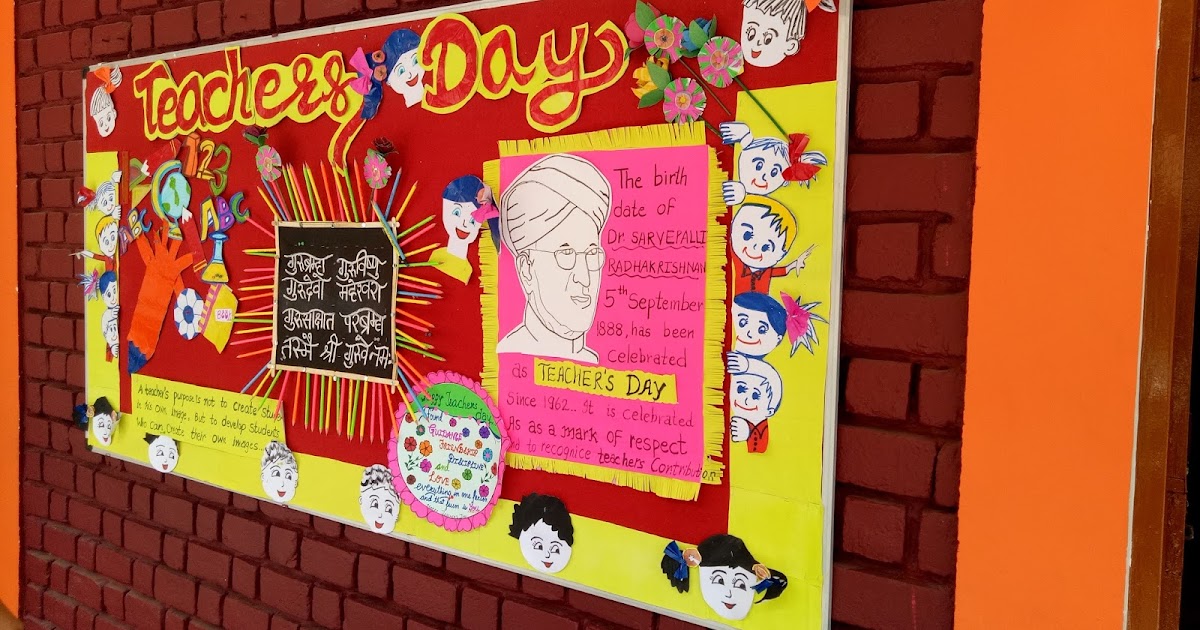 Teachers Day
123
ABC
ABC
गुरुब्रम्हा गुरुविष्णु
गुरुर्देवो महेश्वरा
गुरुसाक्षात परब्रम्हा
तस्मै श्री गुरुवे नमः
The birth
date of
Dr. SARVEPALLI
RADHAKRISHNAN
5th September
1888, has been
celebrated
as TEACHER'S DAY
since 1962... It is celebrated
As as a mark of respect
to recognice teachers Contribution
A teacher's purpose is not to create Stude
in his own image, But to develop students
Who can create their own images...
Teachers
GUIDANCE
FRIENDSHIP
DISCIPLINE
and
LOVE
everything in one Person
and that